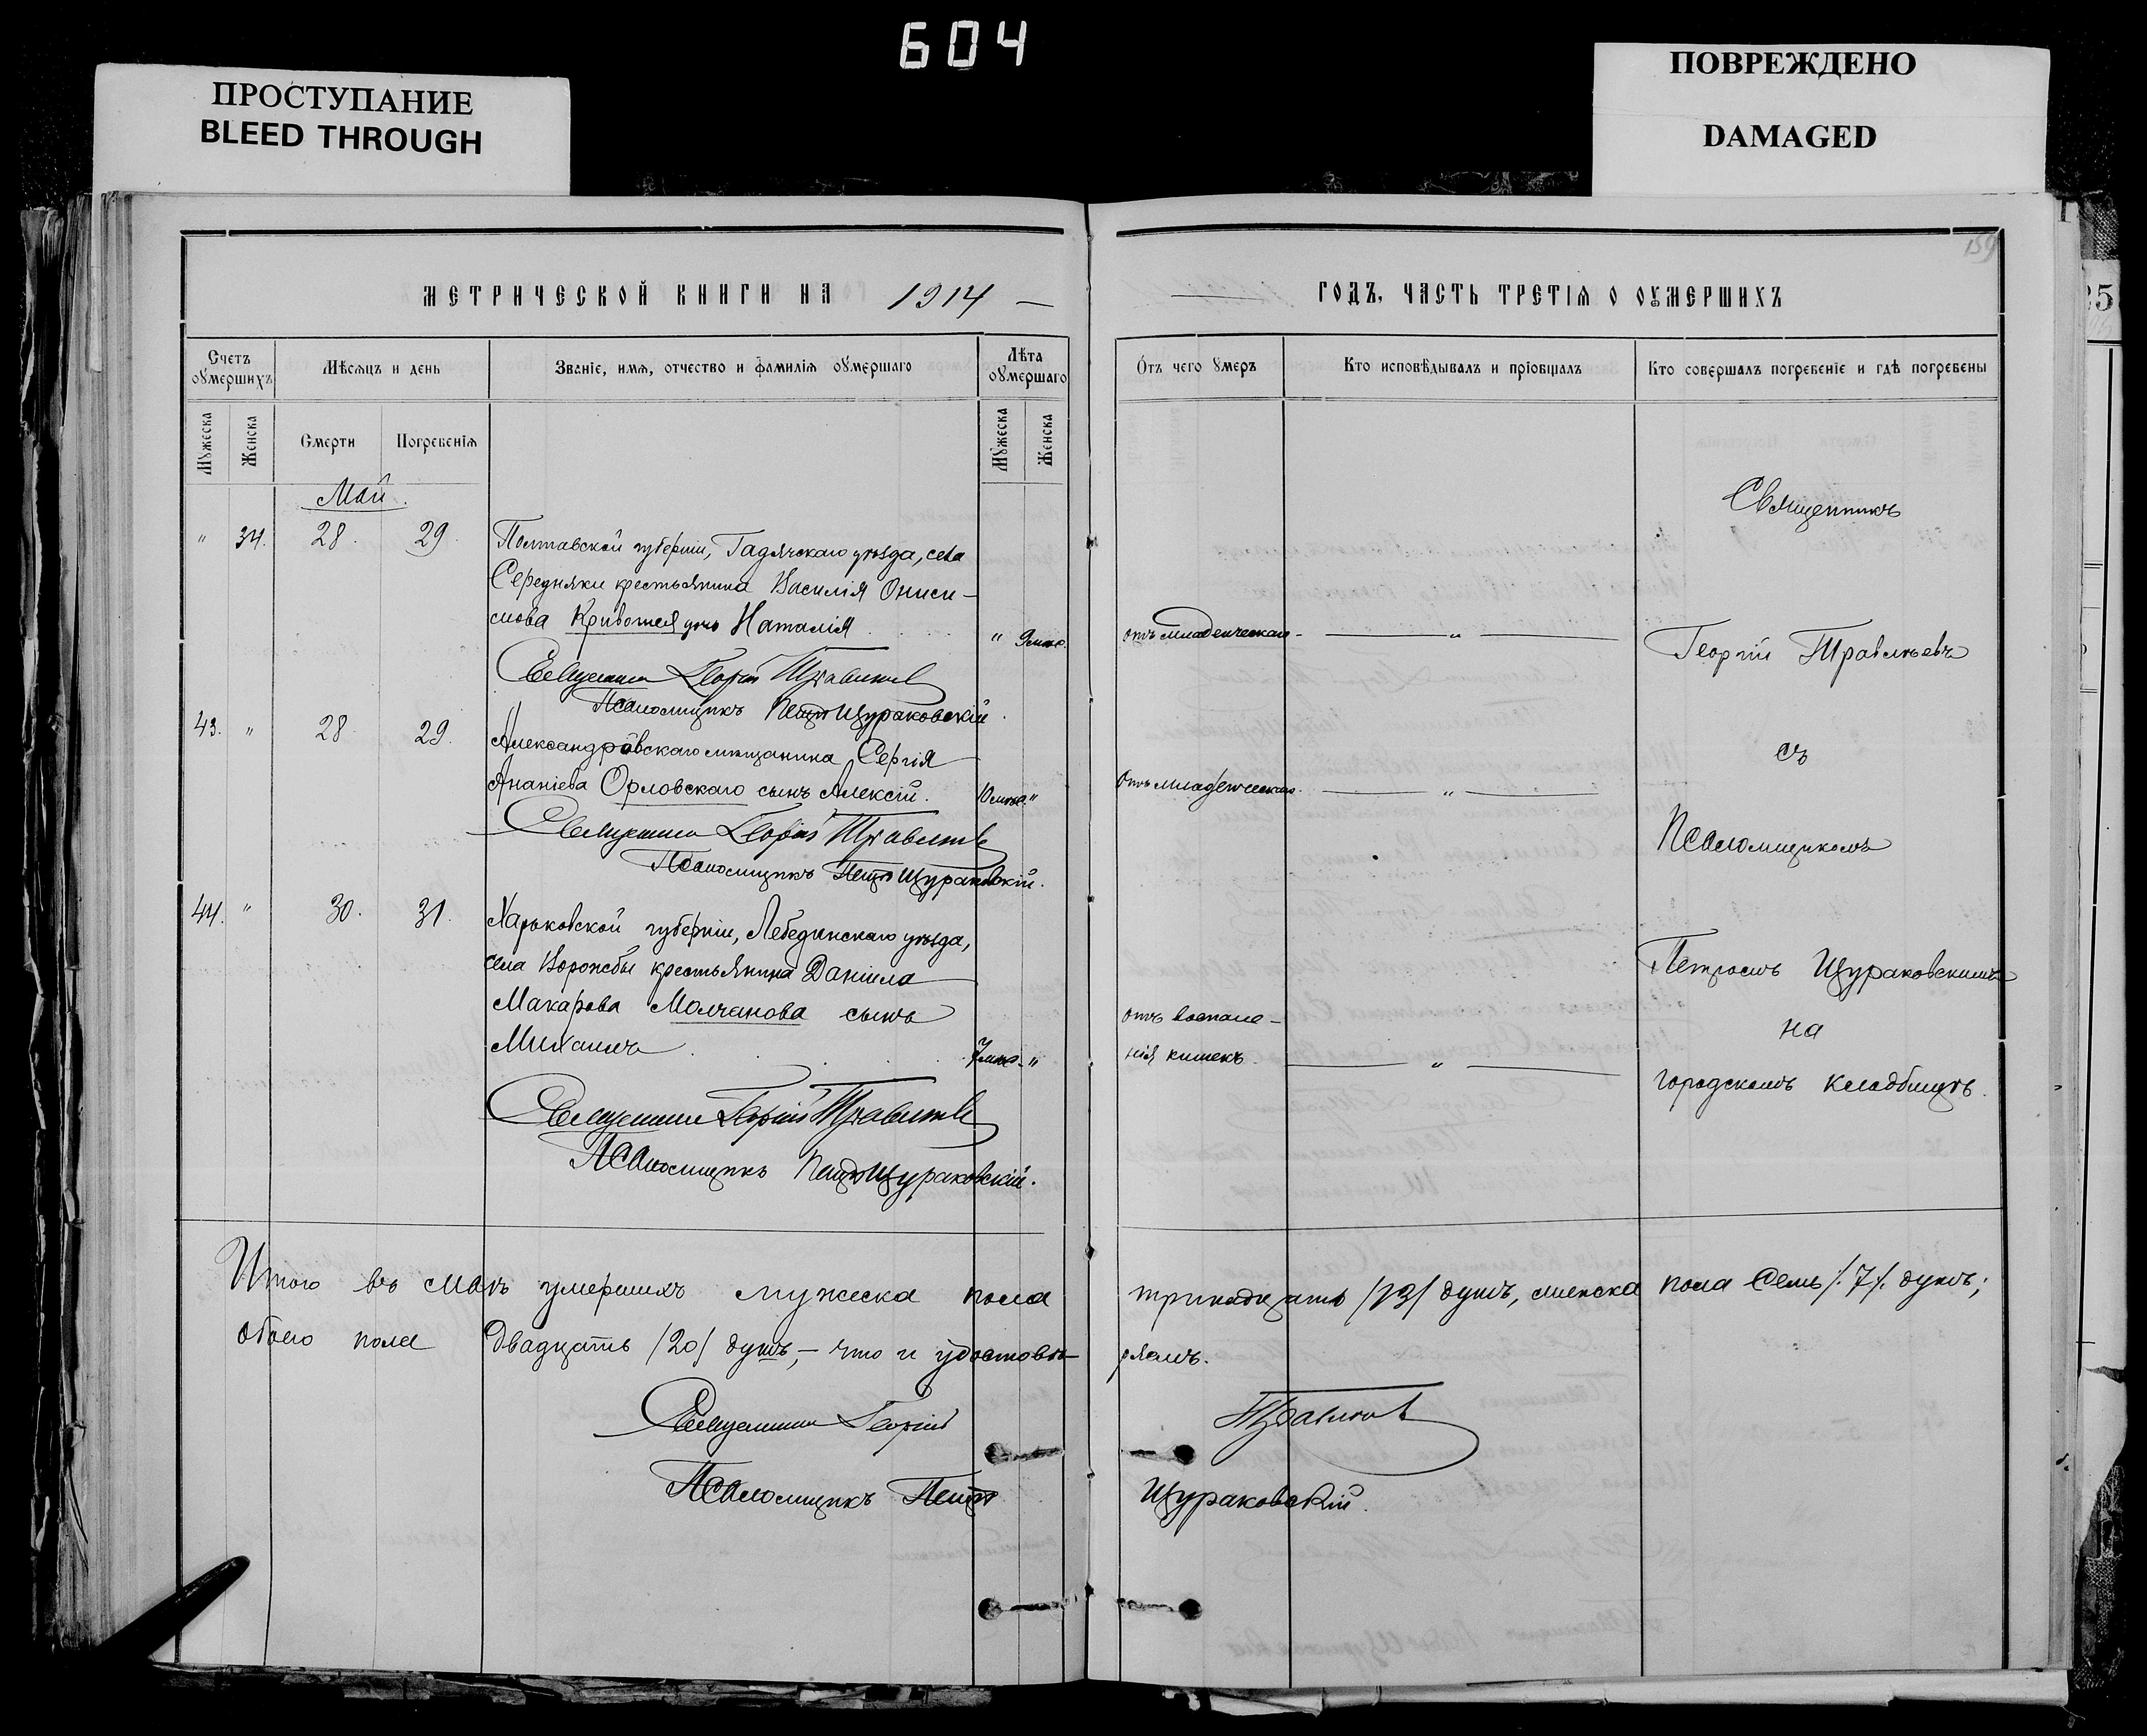 604
ПРОСТУПАНИЕ
BLEED THROUGH
ПОВРЕЖДЕНО
DAMAGED
159
МЕТРИЧЕСКОЙ КНИГИ НА 1914
ГОДЪ, ЧАСТЬ ТРЕТІѦ О ОУМЕРШИХЪ
Счетъ оумершихъ
Мѣсяцъ и день
Званіе, имѧ, отчество и фамиліѧ оумершаго
Лѣта оумершаго
Отъ чего умеръ
Кто исповѣдывалъ и пріобщалъ
Кто совершалъ погребеніе и гдѣ погребены
Мужеска
Женска
Смерти
Погребеніѧ
Мужеска
Женска
Май.
Священникъ
" 34. 28. 29. Полтавской губерніи, Гадячскаго уѣзда, села
Середняки крестьянина Василія Ониси-
мова дочь Наталія " 9 отъ младенческаго "
Георгій
Священникъ Георгій
Псаломщикъ Петръ Щураковскій.
43. " 28. 29. Александровскаго мѣщанина Сергія
съ
Ананіева Орловскаго сынъ Алексій. " Отъ младенческаго. "
Священникъ Георгій
Псаломщикомъ
Псаломщикъ Петръ Щураковскій.
44. " 30. 31. Харьковской губерніи, Лебединскаго уѣзда,
Петромъ Щураковскимъ
села Ворожбы крестьянина Даніила
Макарова Молчанова сынъ отъ воспале-
на
Михаилъ " нія кишекъ. "
городскомъ кладбищѣ.
Священникъ Георгій
Псаломщикъ Петръ Щураковскій.
Итого въ Маѣ умершихъ мужеска пола тринадцать /13/ душъ, женска пола семь /.7/. душъ;
обоего пола двадцать /20/ душъ, – что и удостовѣ-
ряемъ.
Священникъ Георгій
Псаломщикъ Петръ Щураковскій.